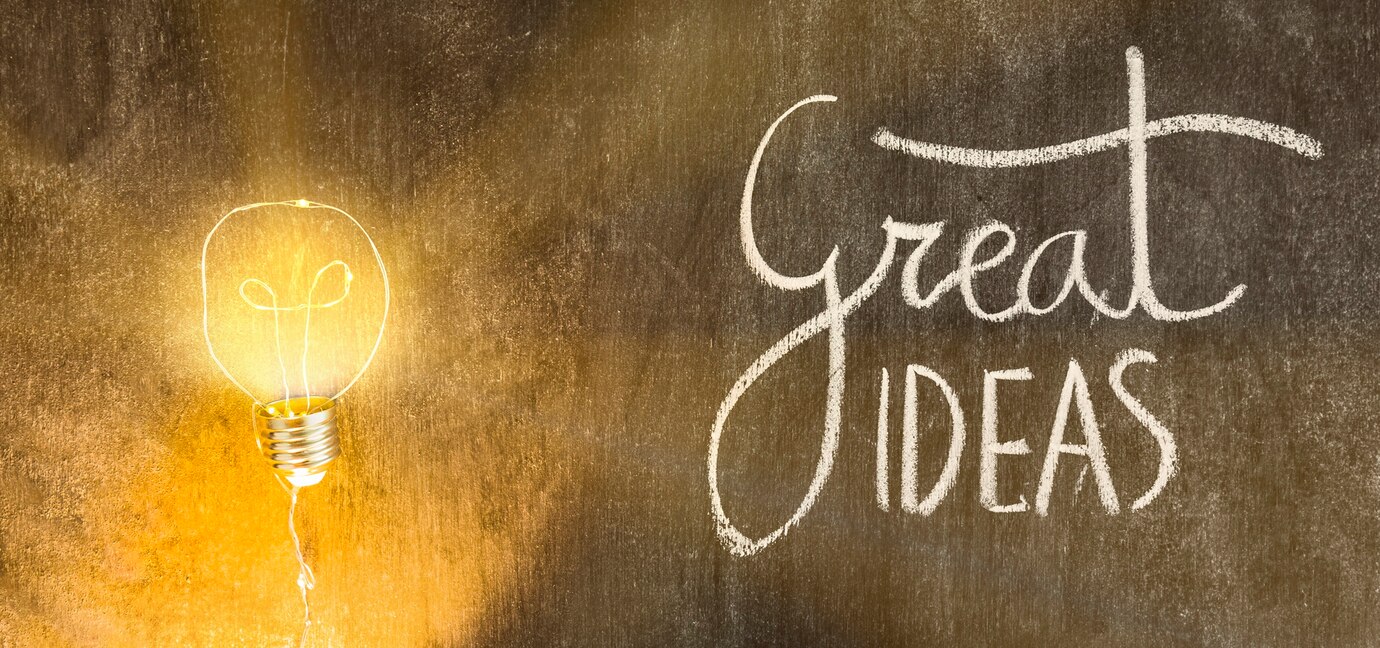 Great
IDEAS